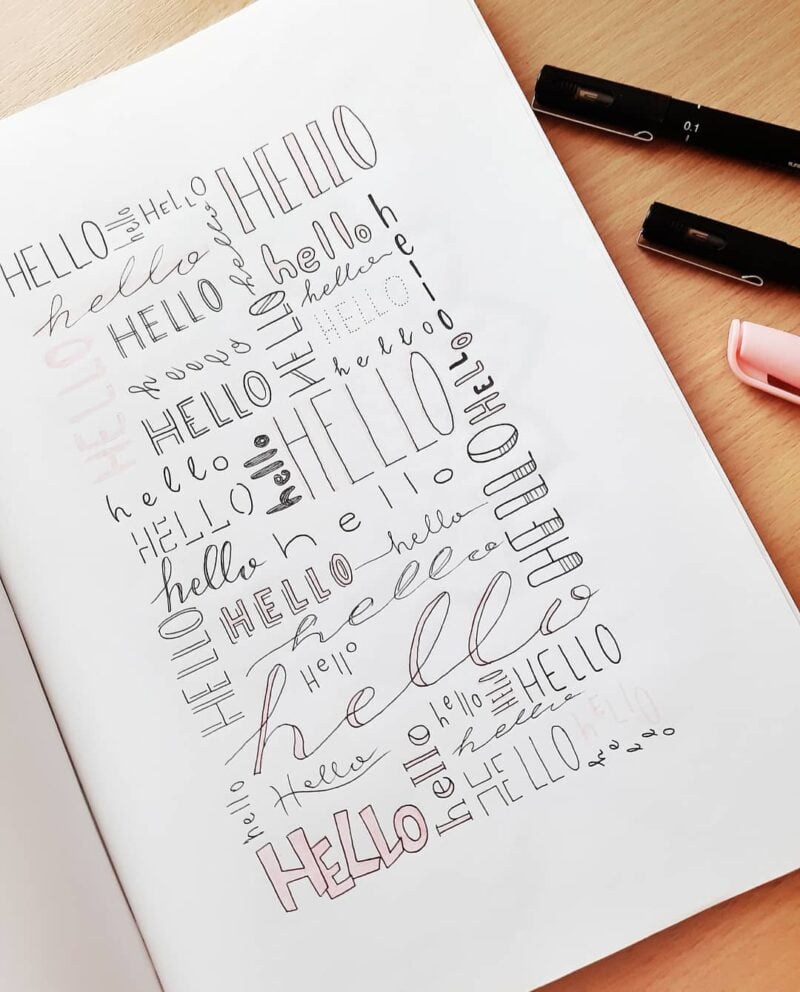 HELLO
hello
HELLO
hello
HELLO
hello
HELLO
hello
hello
hello
HELLO
HELLO
hello
HELLO
hello
HELLO
HELLO
hello
HELLO
hello
hello
HELLO
hello
HELLO
hello
HELLO
hello
hello
HELLO
hello
hello
HELLO
hello
hello
HELLO
HELLO
hello
hello
HELLO
hello
Hello
HELLO
HELLO
0.1